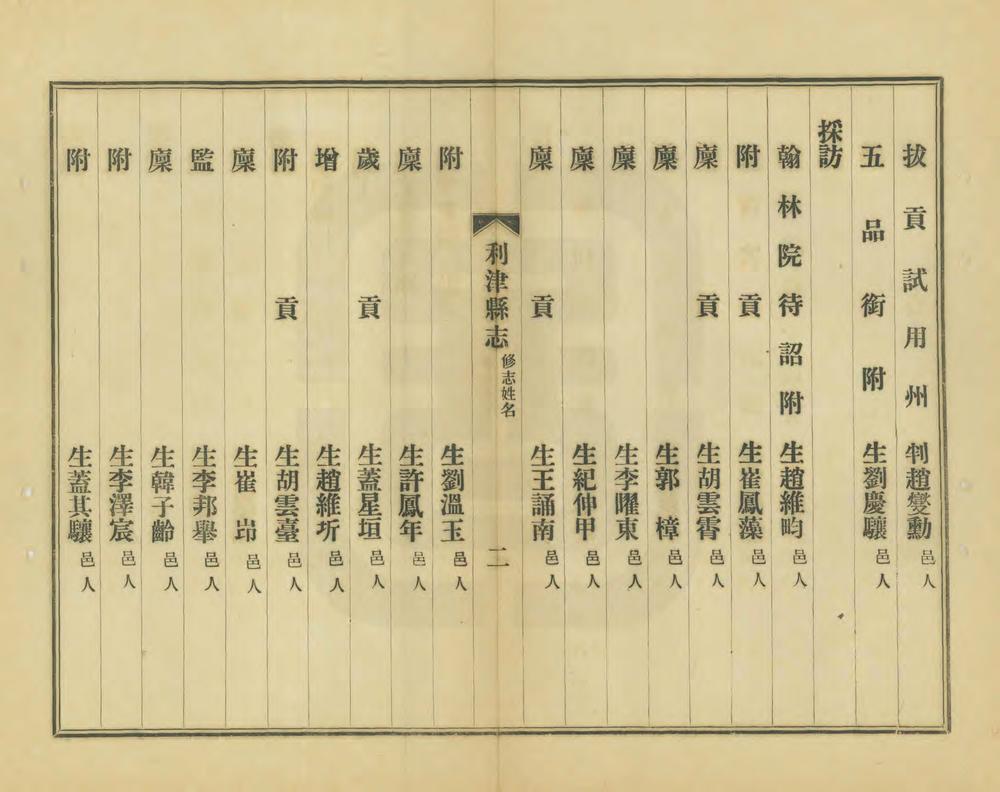 拔貢試用州判趙燮勳邑人
五品銜附生劉慶驤邑人
採訪
翰林院待詔附生趙維畇邑人
附貢生崔鳳藻邑人
廩貢生胡雲霄邑人
廩生郭樟邑人
廩生李曜東邑人
廩生紀仲甲邑人
廩貢生王誦南邑人
利津縣志修志姓名二
附生劉溫玉邑人
廩生許鳳年邑人
歲貢生蓋星垣邑人
增生趙維圻邑人
附貢生胡雲臺邑人
廩生崔岇邑人
監生李邦舉邑人
廩生韓子齡邑人
附生李澤宸邑人
附生蓋其驤邑人